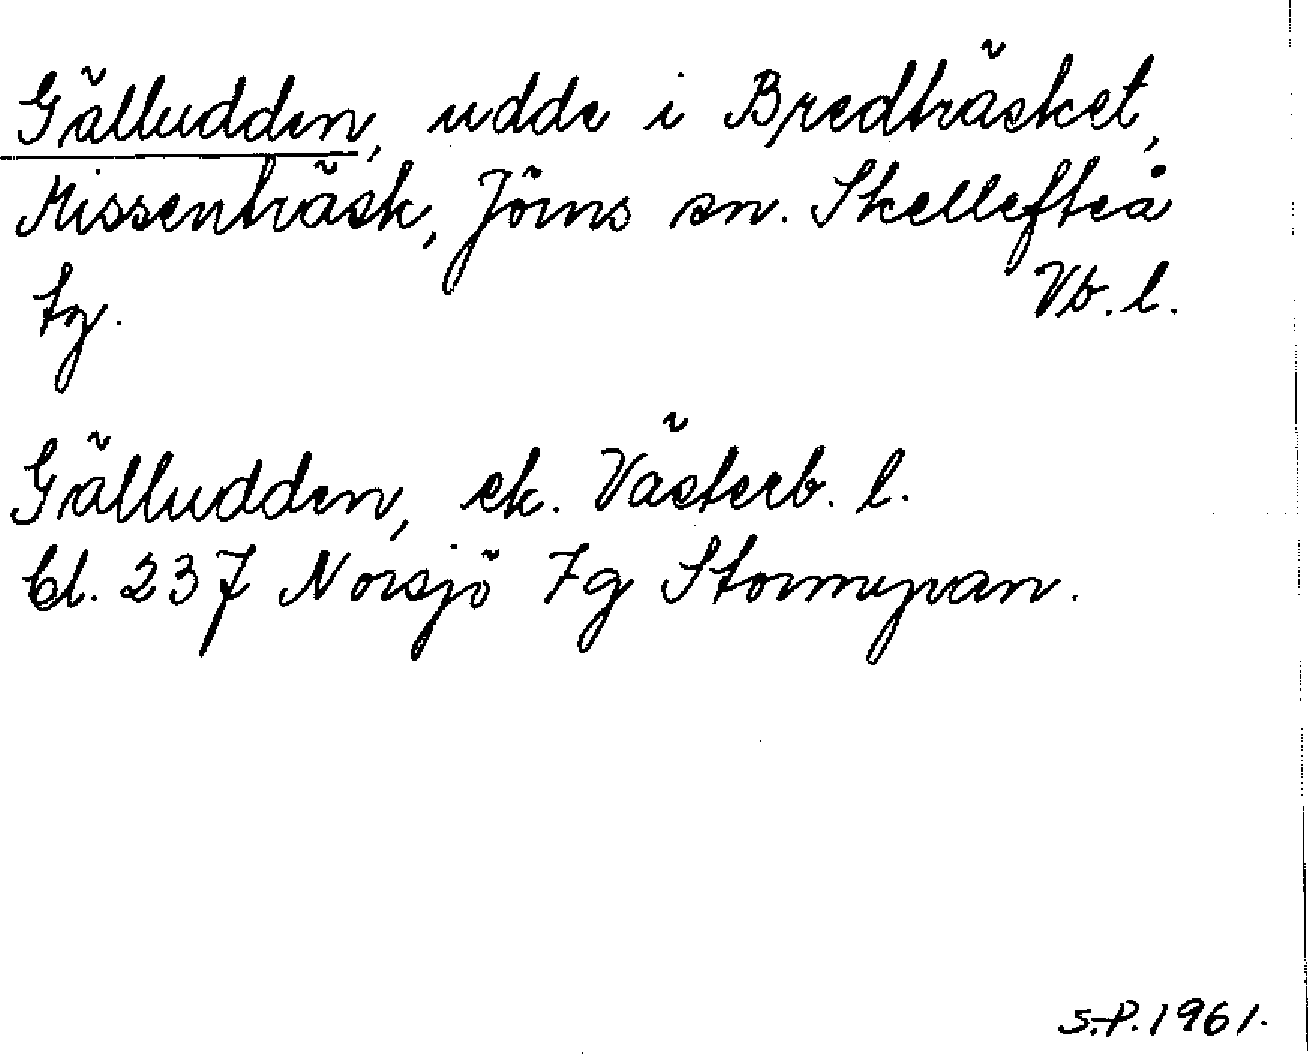 Gälludden, udde i Bredträsket,
Missenträsk, Jörns sn. Skellefteå
tg. Vb. l.
Gälludden, ek. Västerb. l.
bl. 237 Norsjö 7g Stormyran.
S.P. 1961.